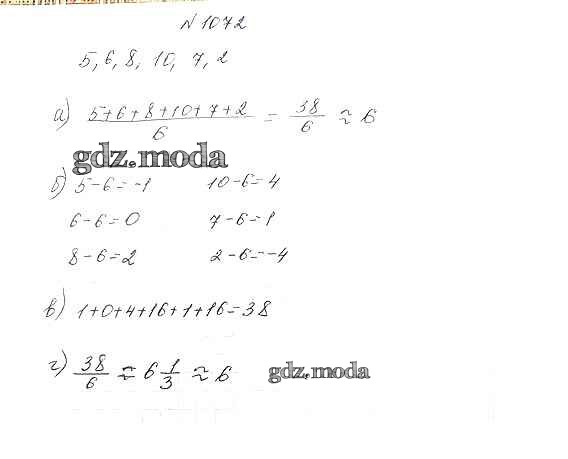 N 1072
5, 6, 8, 10, 7, 2
а) (5+6+8+10+7+2)/6 = 38/6 ≈ 6
gdz.moda
б) 5-6=-1 10-6=4
6-6=0 7-6=1
8-6=2 2-6=-4
в) 1+0+4+16+1+16=38
г) 38/6 ≈ 6 1/3 ≈ 6 gdz.moda